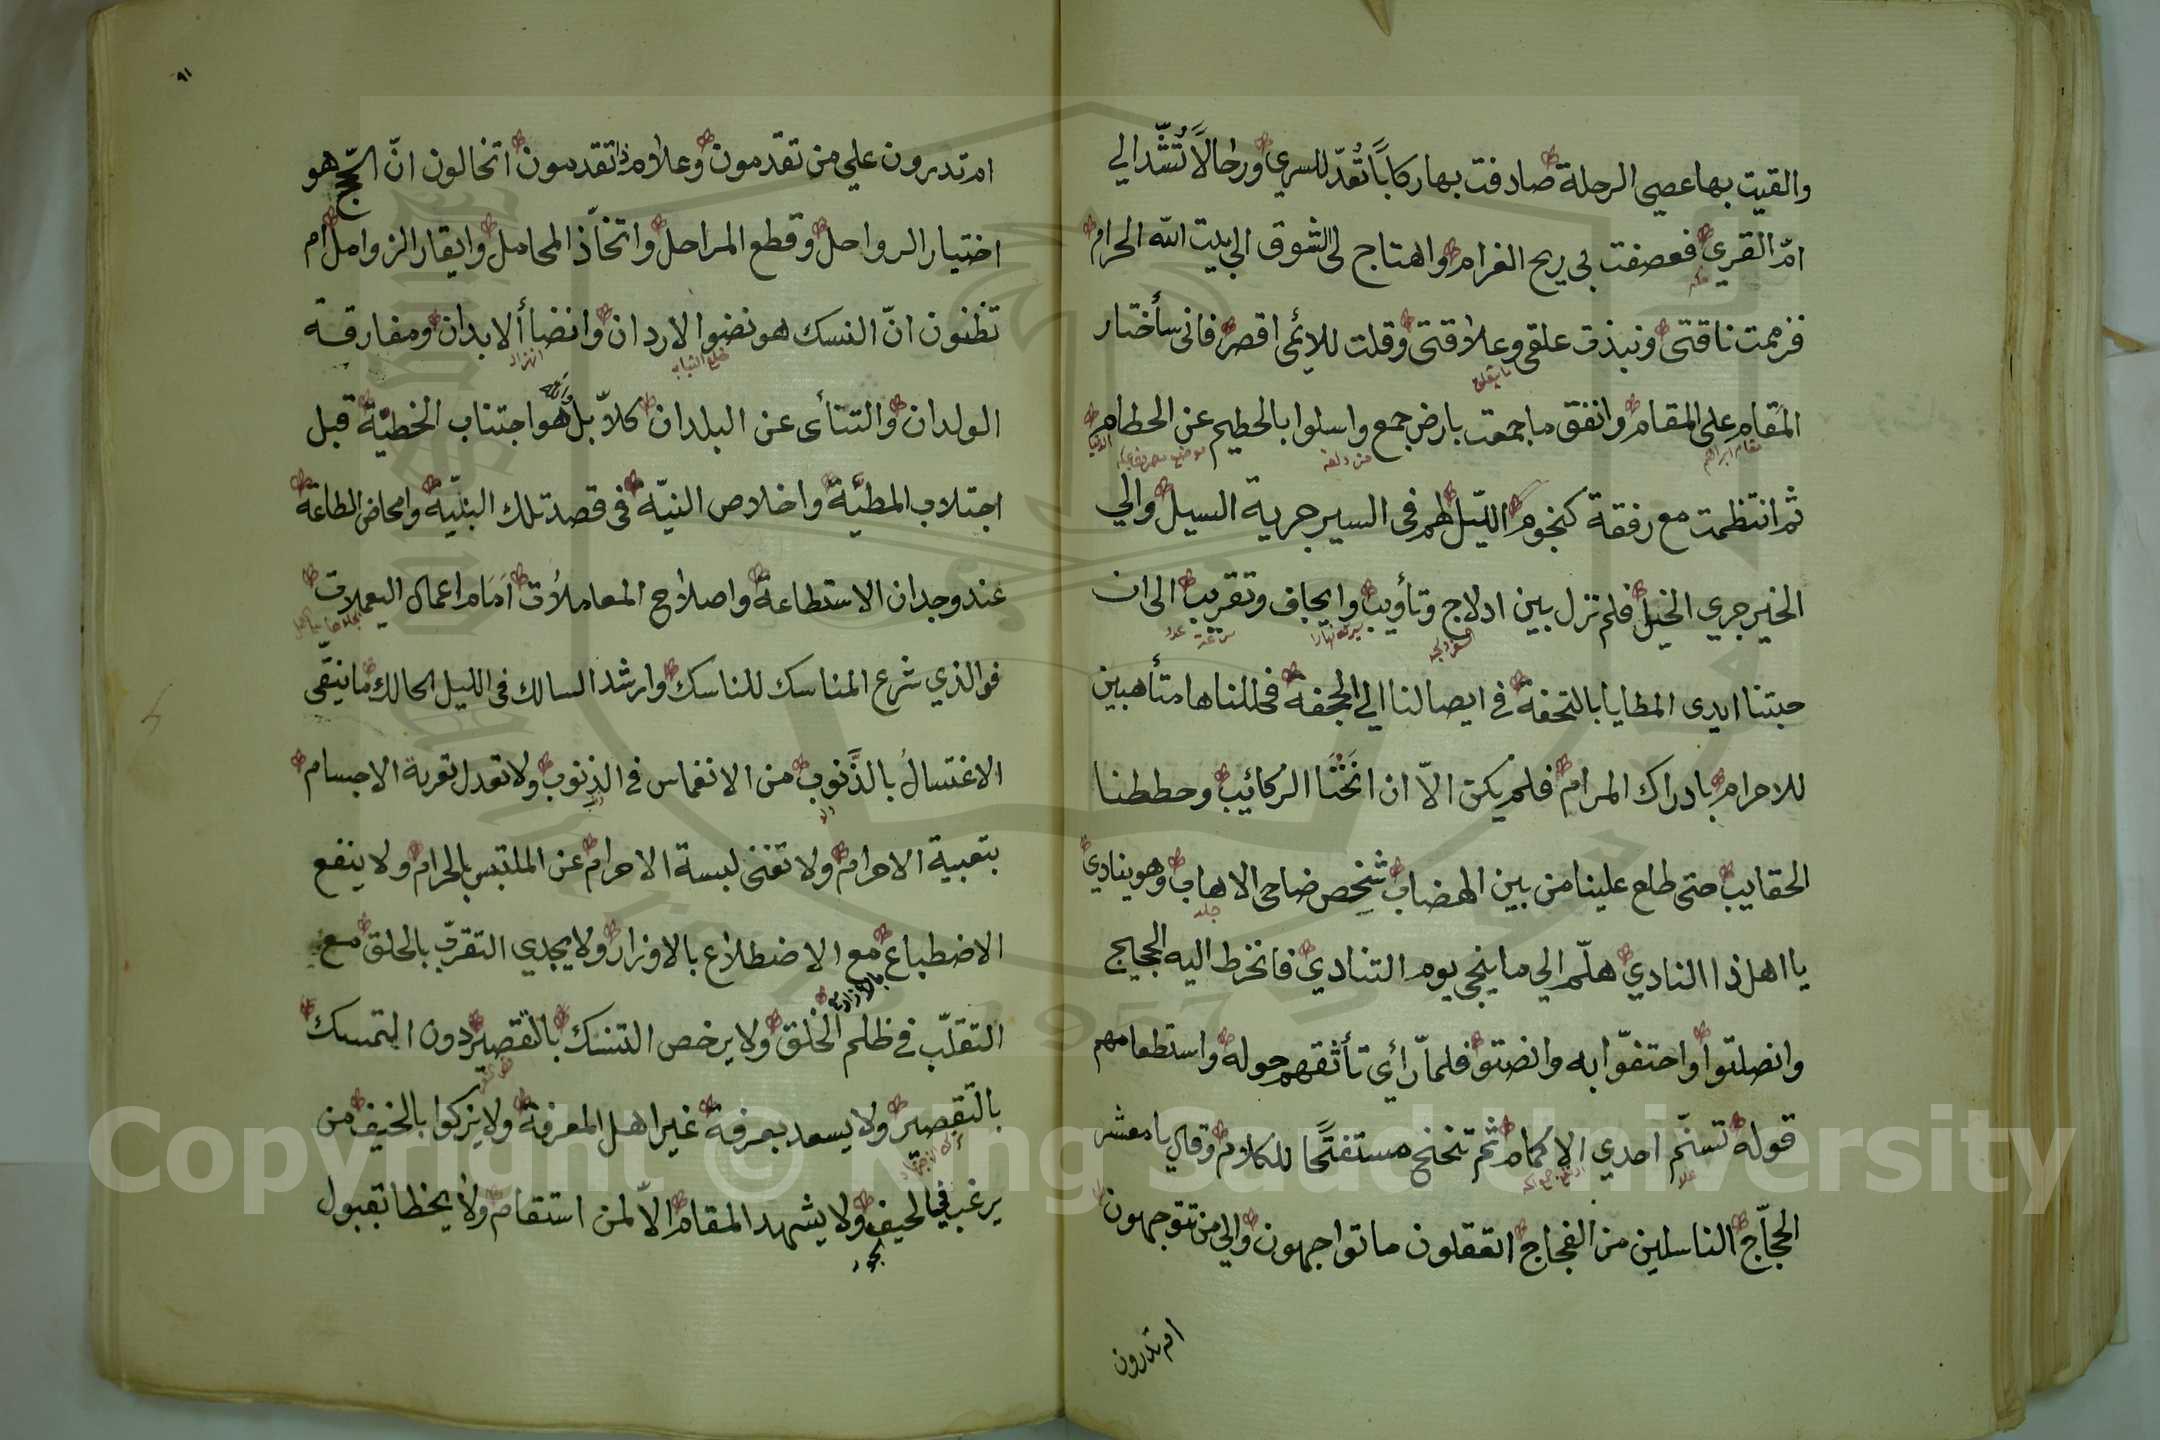 والقيت بها عصي الرحلة صادفت بها ركابًا تُعَدّ للسري ورحالًا تُشَّد الي
امّ القري فعصفت بي ريح الغرام واهتاج لي الشوق الي بيت الله الحرام
فزممت ناقتي ونبذت علقي وعلاقتي وقلت للائمي اقصر فاني سأختار
المَقام علي المقام وانفق ما جمعت بارض جمع واسلوا بالحطيم عن الحطام
مقام ابراهم
ثم انتظمت مع رفقة كنجوم الليّل لهم في السير جرية السيل والي
الخير جري الخيل فلم نزل بين ادلاج وتأويب وايجاف وتقريب الى ان
حبتنا ايدى المطايا بالتحفة في ايصالنا الي الجحفة فحللناها متأهبين
للاحرام بادراك المرام فلم يكن الاّ ان انَخْنَا الركائيب وحططنا
الحقايب حتى طلع علينا من بين الهضاب شخص ضاحى الاهاب وهو ينادي
جلد
يا اهل ذا النادي هلّم الي ما ينجي يوم التنادي فانخرط اليه الحجيج
وانصلتوا واحتفوّا به وانصتوا فلماّ رأي تأثقهم حوله واستطعامهم
قوله تسنّم احدي الاكمام ثم تنحنح مستفتحًا للكلام وقال يا معشر
علا
الحجّاج الناسلين من الفجاج اتعقلون ما تواجهون والي من تتوجهون
ام تدرون
٩١
ام تدرون علي من تقدمون وعلام ذا تقدمون اتخالون انّ الحّج هو
اختيار الرواحل وقطع المراحل واتخاّذ المحامل وايقار الزوامل ام
تظنون انّ النسك هو نضوا الاردان وانضا ألابدان ومفارقة
خلع الثياب
الولدان والتنأى عن البلدان كلاّ بل والله هُو اجتناب الخطيّة قبل
اجتلاب المطيّة واخلاص النيّة في قصد تلك البنيّة وامحاض الطاعة
عند وجدان الاستطاعة واصلاح المعاملات اَمَام اعمال اليعملات
فو الذي شرع المناسك للناسك وارشد السالك في الليل الحالك ما ينقّى
الاغتسالُ بالذَّنوب من الانغماس في الذنوب ولا تعدل تعرية الاجسام
بتعبية الاجرام ولا تغنى لبسة الاحرام عن الملتبس بالحرام ولا ينفع
الاضطباع بالازار مع الاضطلاع بالاوزار ولا يجدي التقربّ بالحلق مع
التقلّب في ظلم الخلق ولا يرخص التنسك بالتقصير دون التمسك
بالتقصير ولا يسعد بعرفة غير اهل المعرفة ولا يزكوا بالخيف من
يرغب في الحيف ولا يشهد المقام الاّ لمن استقام ولا يخظا بقبول